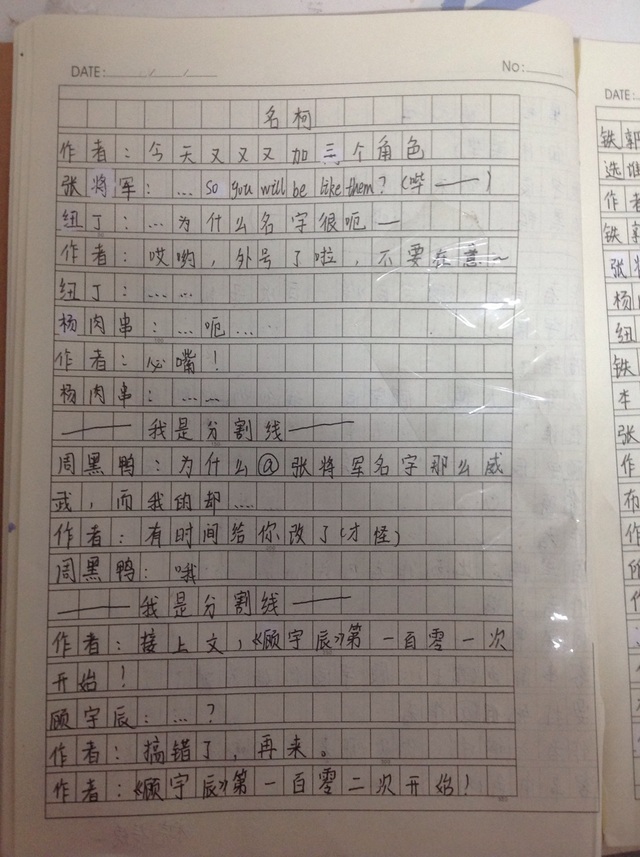 DATE: / /
No:
名柯
作者:今天又又又加三个角色
张将军:… so you will be like them?(哔——)
纽丁:…为什么名字很呃—
作者:哎哟,外号了啦,不要在意~
纽丁:……
杨肉串:…呃…
作者:必嘴!
杨肉串:……
——我是分割线——
周黑鸭:为什么@张将军名字那么威
武,而我的却….
作者:有时间给你改了(才怪)
周黑鸭:哦
——我是分割线——
作者:接上文,《顾宇辰》第一百零一次
开始!
顾宇辰:…?
作者:搞错了,再来。
作者:《顾宇辰》第一百零二次开始!
DATE:
铁郭
选
作者
铁郭
张将
杨肉
纽
铁
本
张
作
布
作
所
作